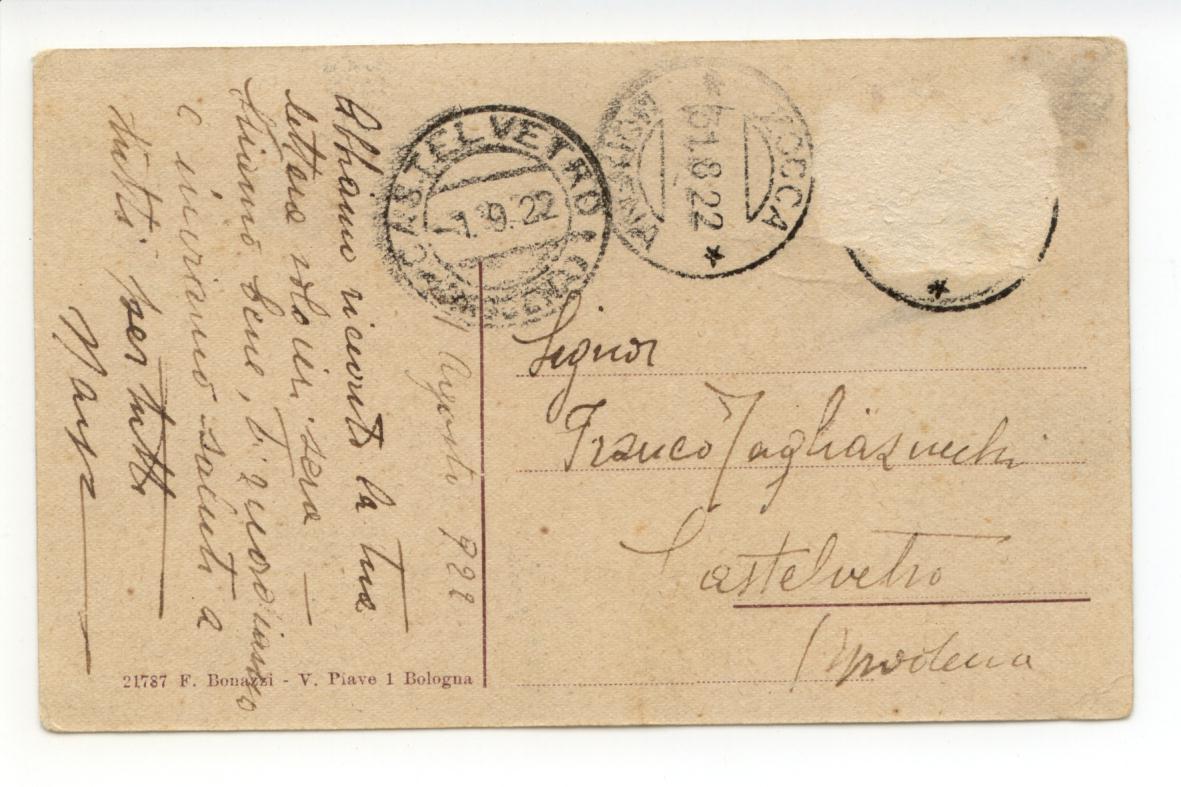 Agosto 922
Abbiamo ricevuto la tua
lettera solo ieri sera
Stiamo bene, ti
e inviamo saluti a
tutti per tutti
CASTELVETRO
-1.9.22
31.8.22
ROCCA
Signor
Franco Tagliazucchi
Castelvetro
(Modena
21787 F. Bonazzi - V. Piave 1 Bologna